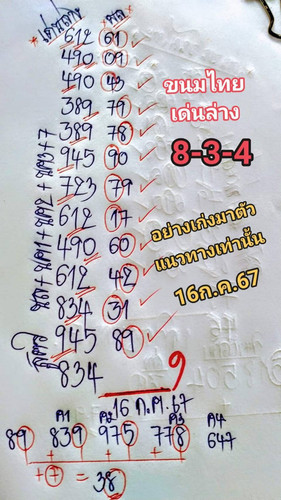 เด่นล่าง ผล
612 61
490 09
490 43
389 79
389 78
945 90
723 79
612 17
490 60
612 42
834 31
945 89
834 9
สูตร
ขนมไทย
เด่นล่าง
8-3-4
อย่างเก่งมาตัว
แนวทางเท่านั้น
16ก.ค.67
16 ก.ค.67
ค1 ค2 ค3 ค4
89 839 975 778 647
+7 = 38